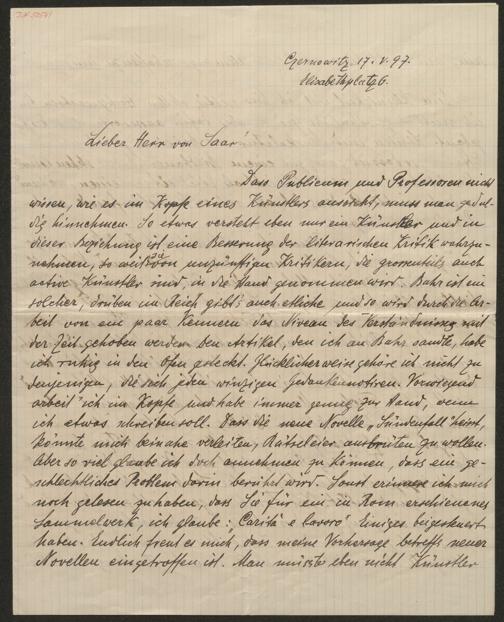 Czernowitz 17. V. 97.
Elisabethplatz 6.
Lieber Herr von Saar!
Dass Publicum und Professoren nicht
wissen, wie es im Kopfe eines Künstlers aussieht, muss man gedul-
dig hinnehmen. So etwas versteht eben nur ein Künstler und in
dieser Beziehung ist eine Besserung der literarischen Kritik wahrzu-
nehmen, so weit von unzünftigen Kritikern, die grossentheils auch
active Künstler sind, in die Hand genommen wird. Bahr ist ein
solcher, drüben im Reich gibt's auch etliche und so wird durch die Ar-
beit von ein paar Kennern das Niveau des Verständnisses mit
der Zeit gehoben werden. Den Artikel, den ich an Bahr sandte, habe
ich ruhig in den Ofen gesteckt. Glücklicherweise gehöre ich nicht zu
derjenigen, die sich jeden winzigen Gedanken notiren. Vorwiegend
arbeit' ich im Kopfe und habe immer genug zur Hand, wenn
ich etwas schreiben soll. Dass die neue Novelle „Sündenfall" heisst,
könnte mich beinahe verleiten, Rätseleier ausbrüten zu wollen.
Aber so viel glaube ich doch annehmen zu können, dass ein ge-
schlechtliches Problem darin berührt wird. Sonst erinnere ich mich
noch gelesen zu haben, dass Sie für ein in Rom erschienenes
Sammelwerk, ich glaube: „Carità e lavoro" Einiges beigesteuert
haben. Endlich freut es mich, dass meine Vorhersage betreffs neuer
Novellen eingetroffen ist. Man müsste eben nicht Künstler